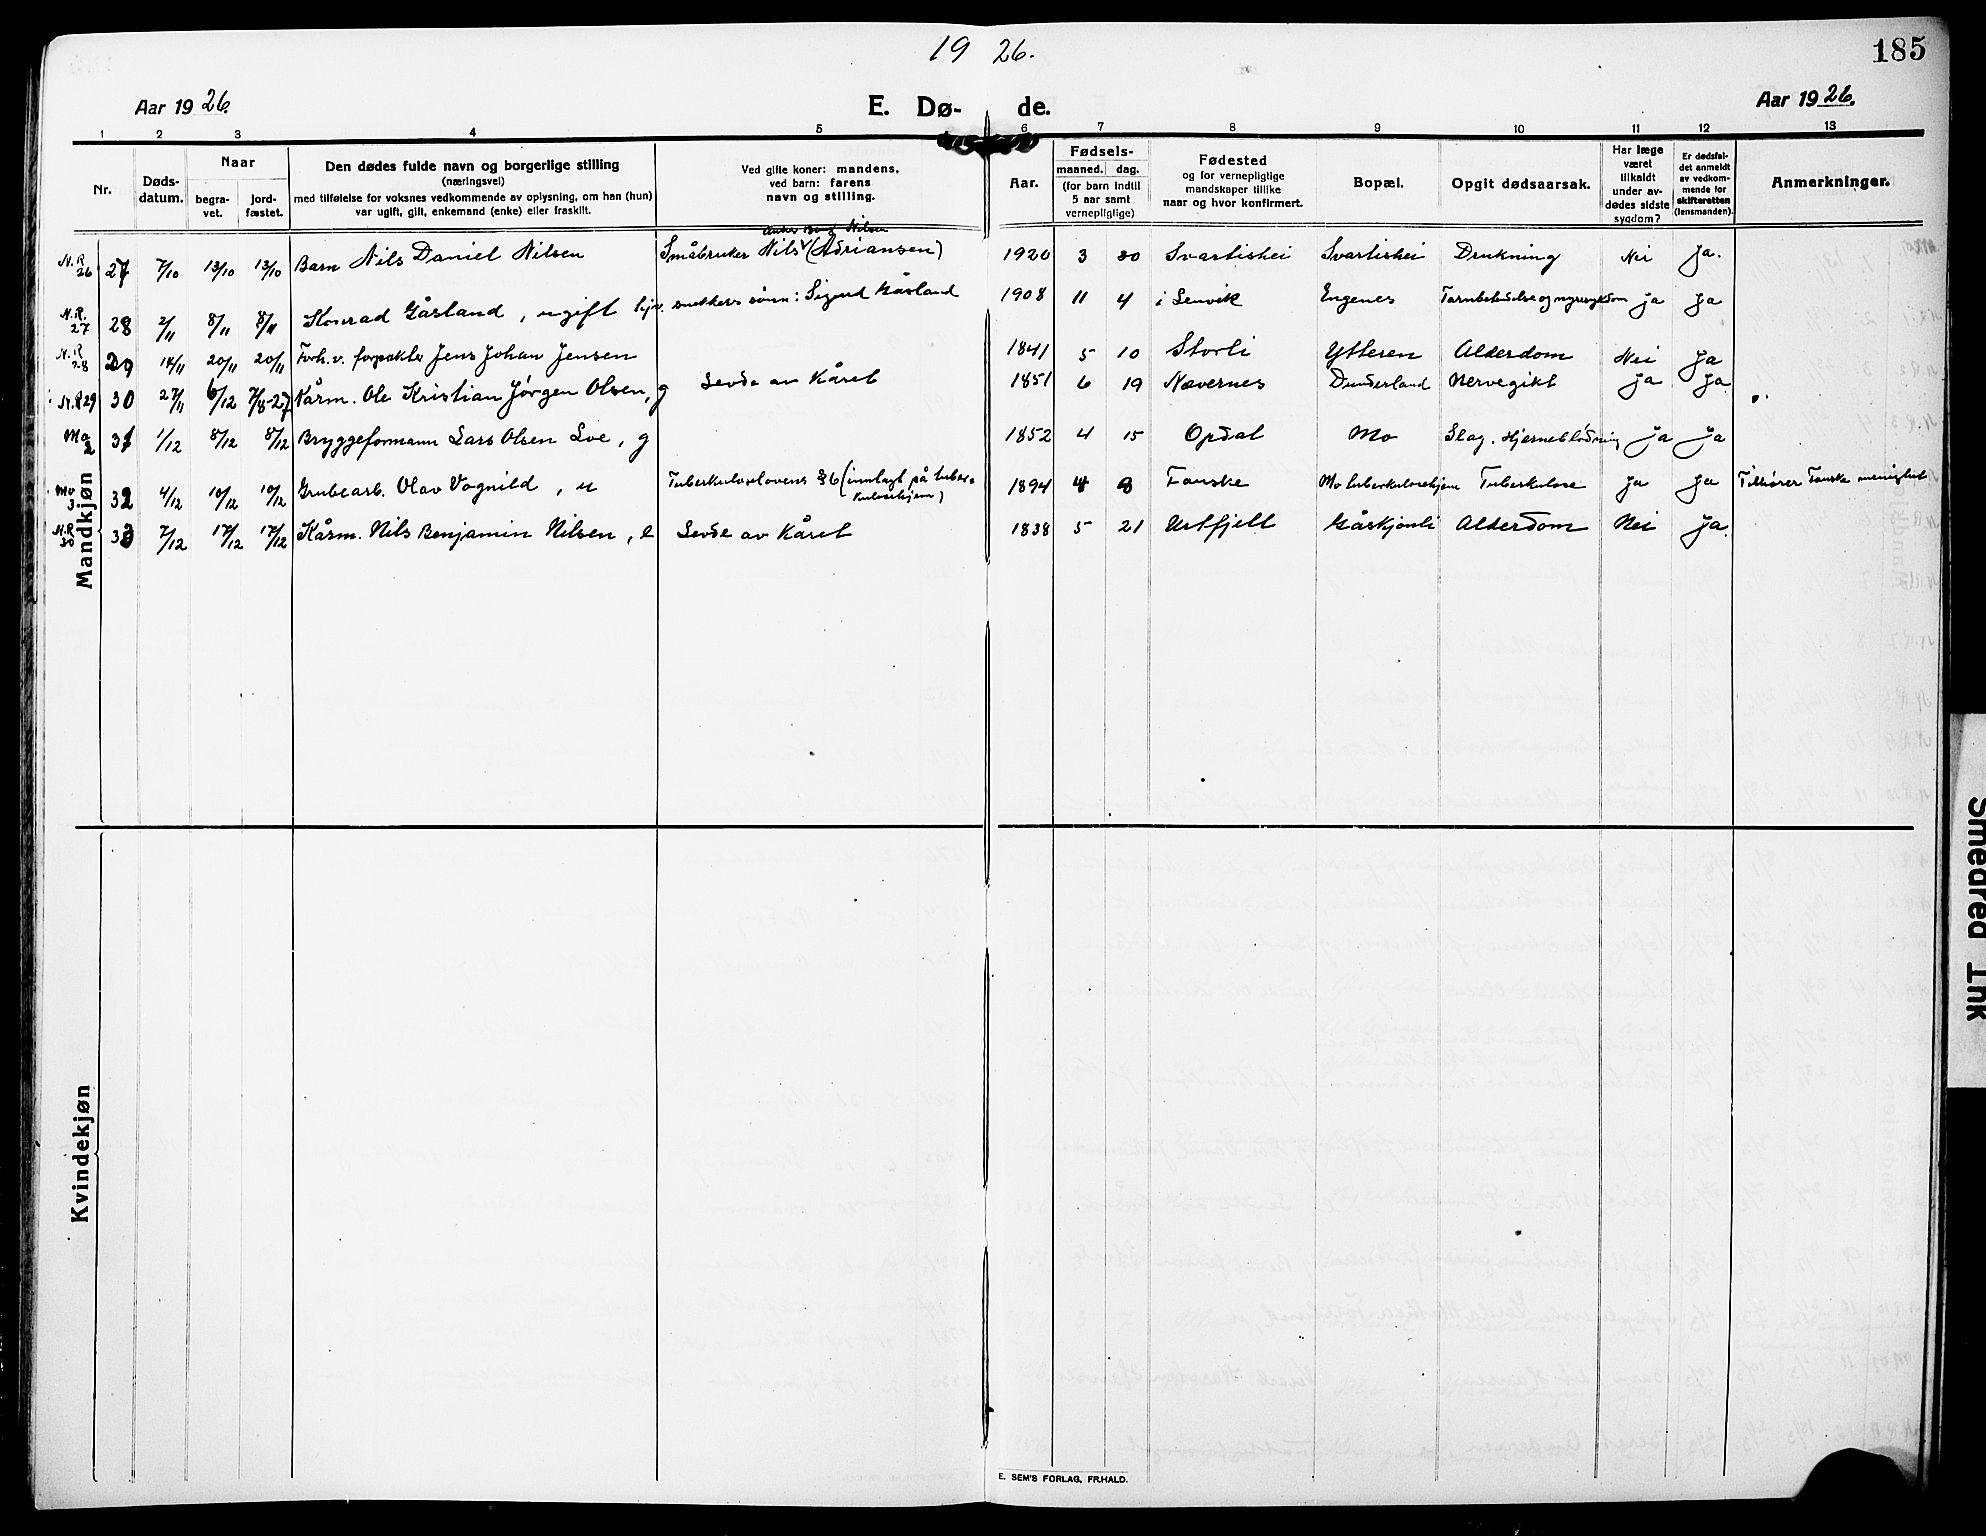 19 26.
185
Aar 1926.
E. Dø- de.
Aar 1926.
1 2 3 4 5 6 7 8 9 10 11 12 13
Nr.
Døds-
datum.
Naar
begra-
vet.
jord-
fæstet.
Den dødes fulde navn og borgerlige stilling
(næringsvei)
med tilføielse for voksnes vedkommende av oplysning, om han (hun)
var ugift, gift, enkemand (enke) eller fraskilt.
Ved gifte koner: mandens,
ved barn: farens
navn og stilling.
Aar.
Fødsels-
maaned. dag.
(for barn indtil
5 aar samt
vernepligtige)
Fødested
og for vernepligtige
mandskaper tillike
naar og hvor konfirmert.
Bopæl.
Opgit dødsaarsak.
Har læge
været
tilkaldt
under av-
dødes sidste
sygdom?
Er dødsfal-
det anmeldt
av vedkom-
mende for
skifteretten
(lensmanden).
Anmerkninger.
Mandkjøn
N.R. 26 27 7/10 13/10 13/10 Barn Nils Daniel Nilsen Småbruker Nils (Adriansen) Nilsen 1920 3 30 Svartishei Svartishei Drukning Nei Ja.
N.R. 27 28 2/11 8/11 8/11 Konrad Gåsland, ugift snekkers sønn: Sigurd Gåsland 1908 11 4 i Senvik Engenes Tarmbetendelse og nyresykdom ja Ja
N.R. 28 29 14/11 20/11 20/11 Forh.v. forpakter Jens Johan Jensen 1841 5 10 Storli Ytteren Alderdom Nei Ja
N.R 29 30 27/11 6/12 7/8-27 Kårm. Ole Kristian Jørgen Olsen, g Levde av kåret 1851 6 19 Nævernes Dunderland Nervegikt ja Ja
Mo 2 31 1/12 8/12 8/12 Bryggeformann Lars Olsen Loe, g 1852 4 15 Opdal Mo Slag. Hjerneblødning ja Ja
Mo 3 32 4/12 10/12 10/12 Grubearb. Olav Vognild, u Tuberkuloselovens § 6 (innlagt på tuber-
kulosehjem) 1894 4 8 Fauske Mo tuberkulosehjem Tuberkulose Ja Ja Tilhører Fauske menighet
N.R. 30 33 7/12 17/12 17/12 Kårm. Nils Benjamin Nilsen, e Levde av kåret 1838 5 21 Urtfjell Gåskjønli Alderdom Nei Ja.
Kvindekjøn
E. SEM'S FORLAG, FR.HALD.
Smeared Ink